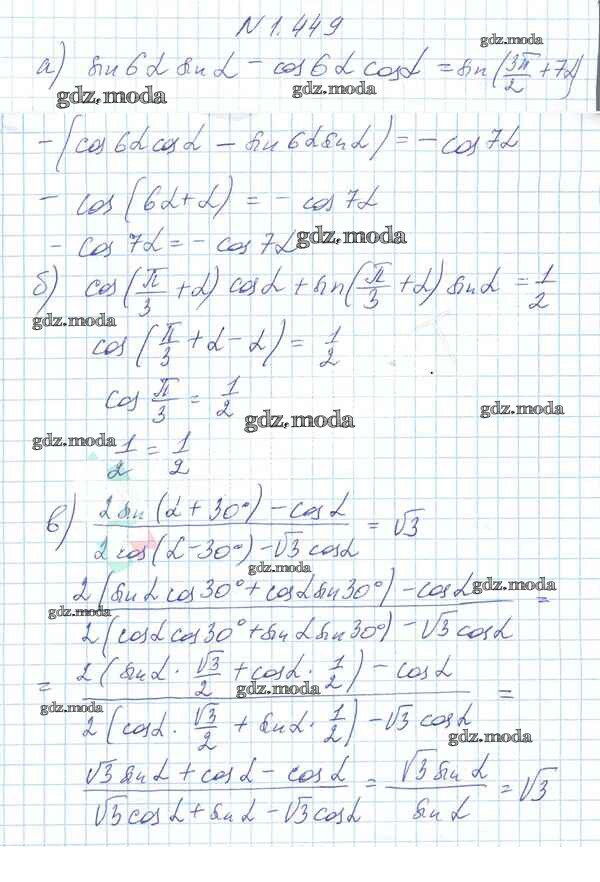 N 1.449
gdz.moda
а) sin 6α sin α − cos 6α cos α = sin (3π/2 + 7α)
gdz.moda gdz.moda
− (cos 6α cos α − sin 6α sin α) = − cos 7α
− cos (6α + α) = − cos 7α
− cos 7α = − cos 7α gdz.moda
б) cos (π/3 + α) cos α + sin (π/3 + α) sin α = 1/2
gdz.moda
cos (π/3 + α − α) = 1/2
cos π/3 = 1/2
gdz.moda gdz.moda
gdz.moda 1/2 = 1/2
в) (2 sin (α + 30°) − cos α) / (2 cos (α − 30°) − √3 cos α) = √3
gdz.moda
(2 (sin α cos 30° + cos α sin 30°) − cos α) / (2 (cos α cos 30° + sin α sin 30°) − √3 cos α) =
gdz.moda gdz.moda
= (2 (sin α · √3/2 + cos α · 1/2) − cos α) / (2 (cos α · √3/2 + sin α · 1/2) − √3 cos α) =
gdz.moda gdz.moda gdz.moda
(√3 sin α + cos α − cos α) / (√3 cos α + sin α − √3 cos α) = (√3 sin α) / (sin α) = √3